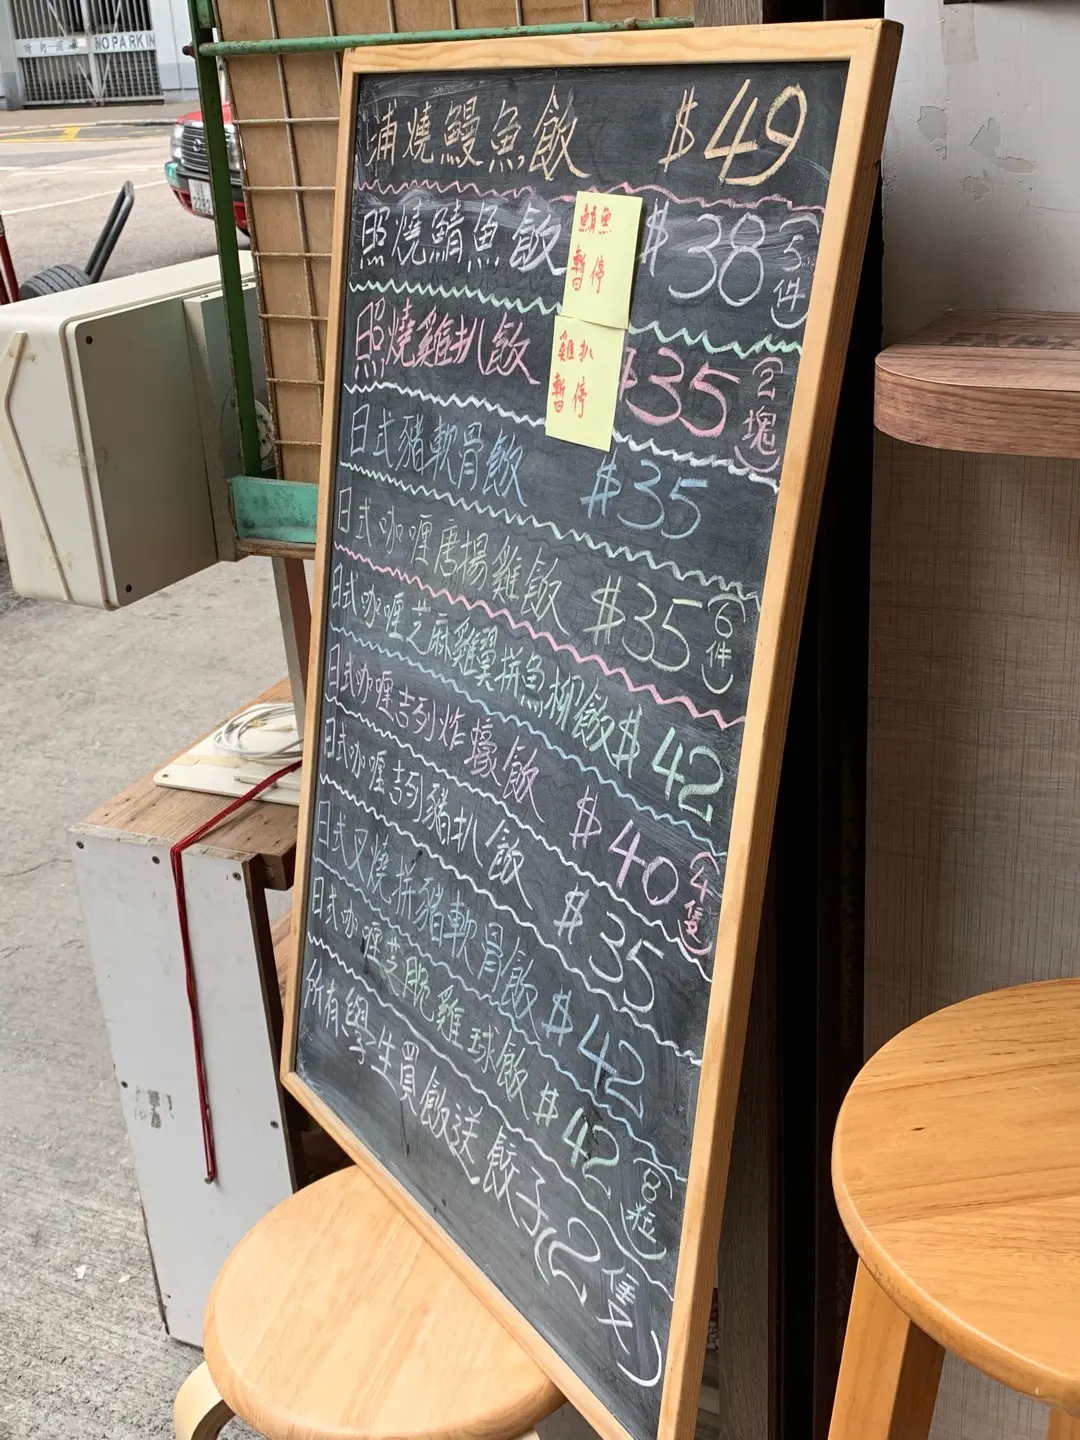 NO PARKIN
浦燒鰻魚飯 $49
照燒鯖魚飯 $38(5件)
鯖魚
暫停
照燒雞扒飯 $35(2塊)
雞扒
暫停
日式豬軟骨飯 $35
日式咖喱唐揚雞飯 $35(6件)
日式咖喱芝麻雞翼拼魚柳飯 $42
日式咖喱吉列炸蠔飯 $40(4隻)
日式咖喱吉列豬扒飯 $35
日式叉燒拼豬軟骨飯 $42
日式咖喱芝脆雞球飯 $42(8粒)
所有學生買飯送餃子(2隻)